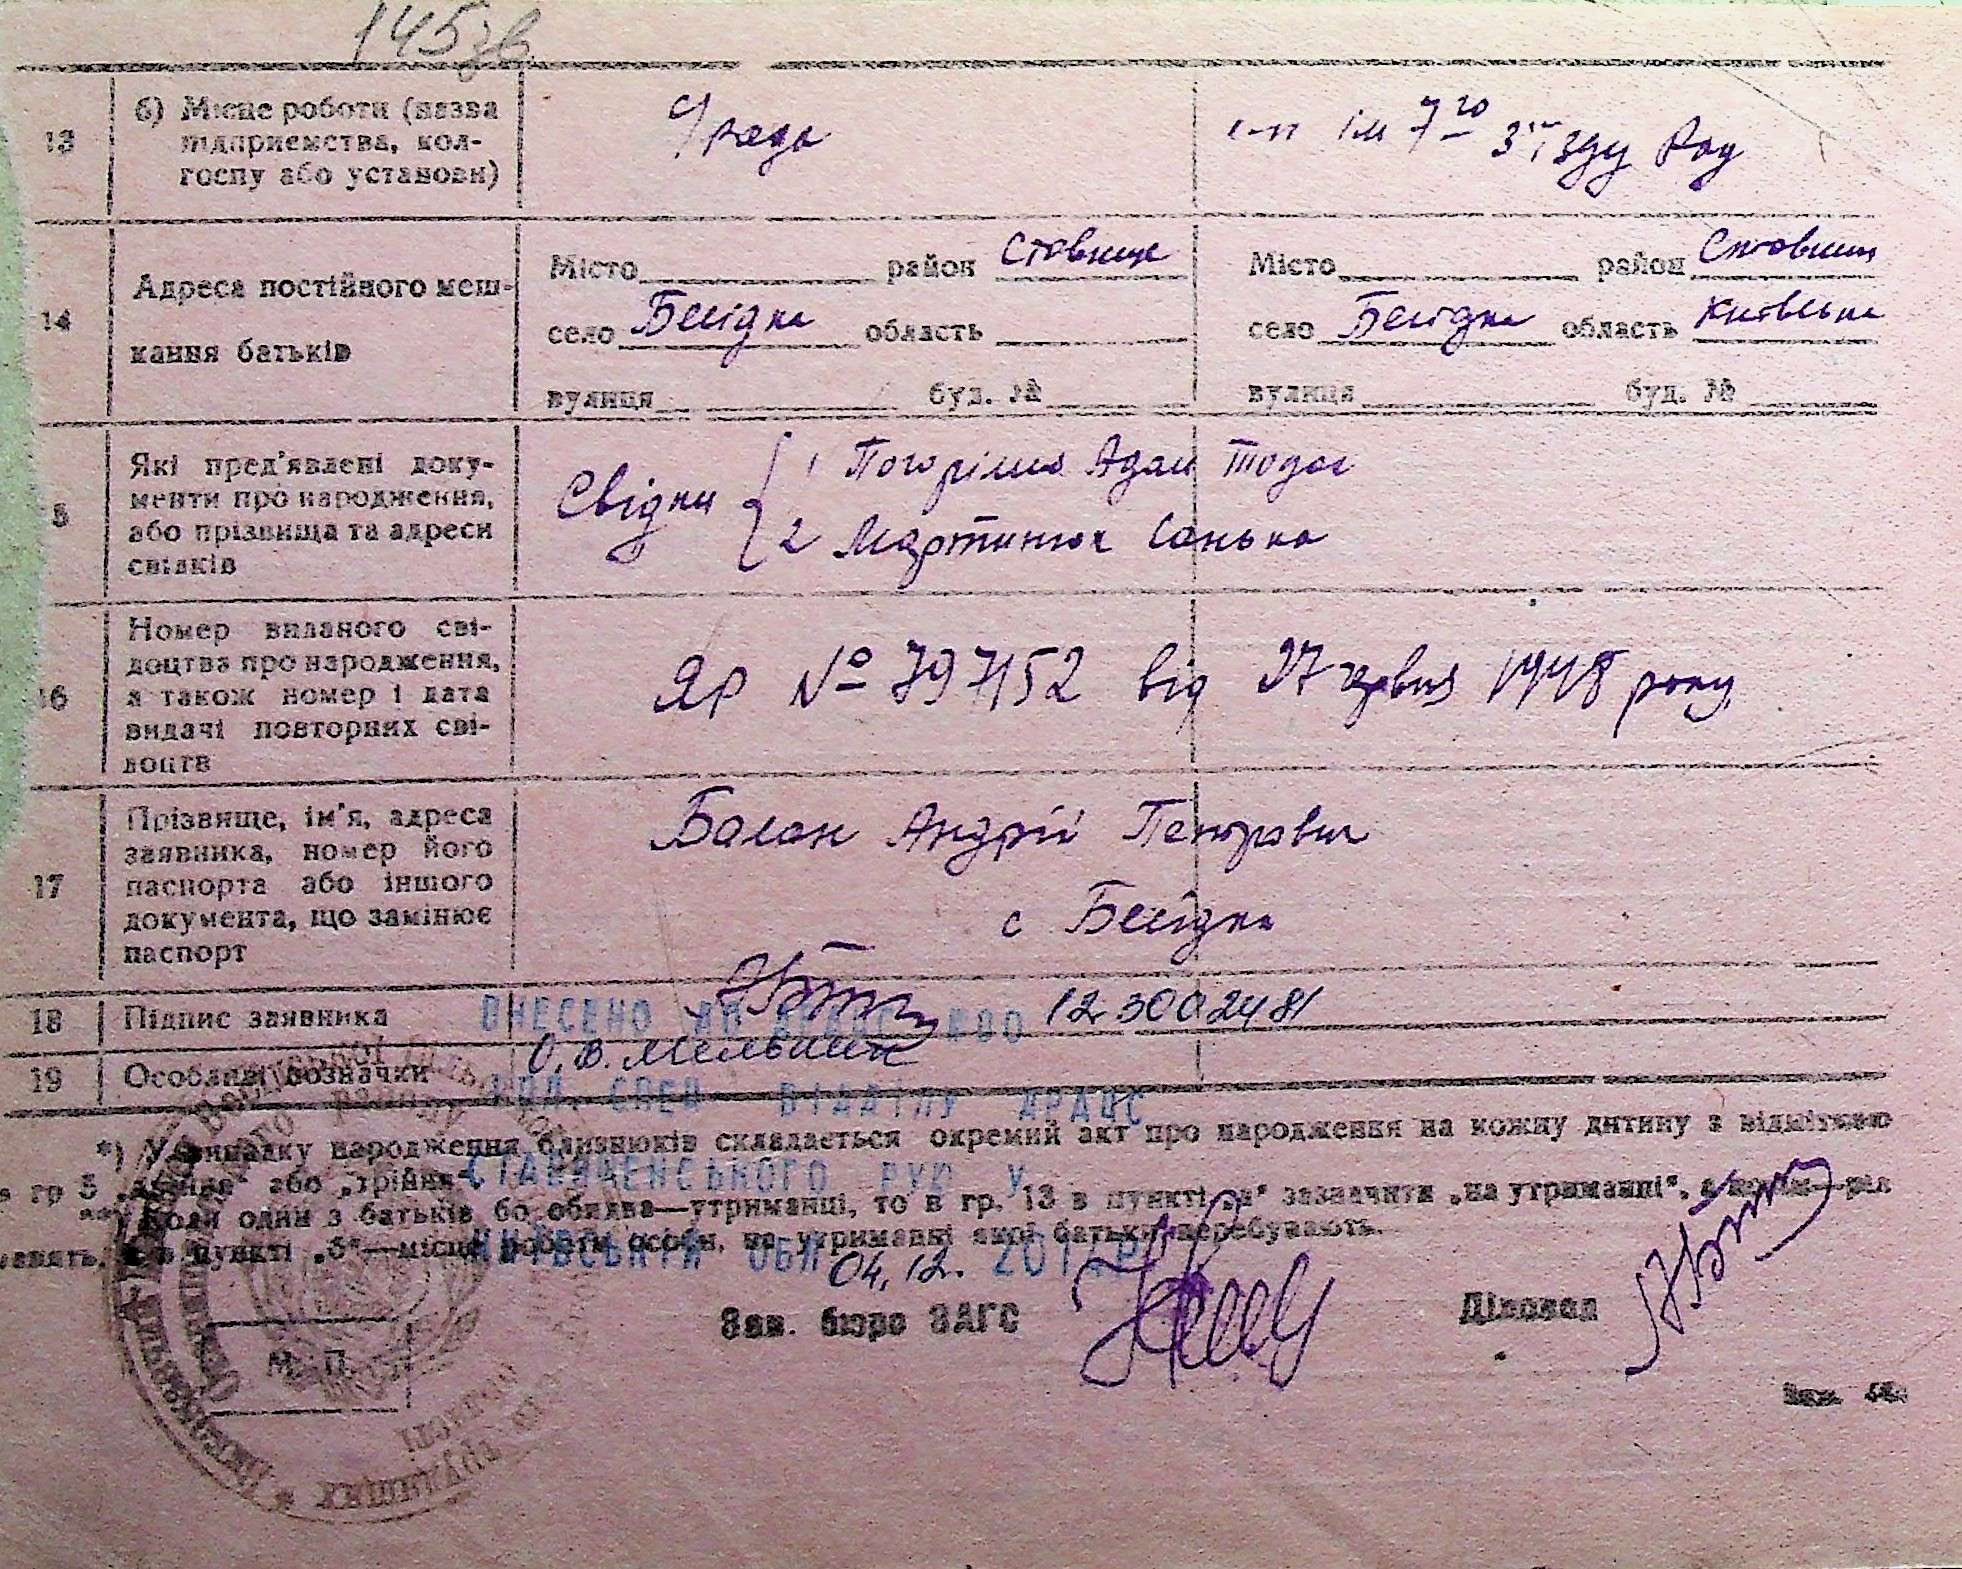 145зв
13
б) Місце роботи (назва
підприємства, кол-
госпу або установи)
с/рада
к-п ім 7го з'їзду Рад
14
Адреса постійного меш-
кання батьків
Місто район Ставище
село Бесідка область
вулиця буд. №
Місто район Ставищ
село Бесідка область Київська
вулиця буд. №
5
Які пред'явлені доку-
менти про народження,
або прізвища та адреси
свідків
Свідки
1 Погоріло Адам Тодос
2 Мартинюк Санька
16
Номер виданого сві-
доцтва про народження,
а також номер і дата
видачі повторних сві-
доцтв
ЯР № 797152 від 27 червня 1948 року
17
Прізвище, ім'я, адреса
заявника, номер його
паспорта або іншого
документа, що замінює
паспорт
Балан Андрій Петрович
с Бесідка
18
Підпис заявника
ВНЕСЕНО
123002481
19
Особливі позначки
О.В. Мельник
СПЕЦ ВІДДІЛУ ДРАЦС
*) У випадку народження близнюків складається окремий акт про народження на кожну дитину з відміткою
в гр 5 „двійня“ або „трійня“
СТАВИЩЕНСЬКОГО РУЮ У
**) Коли один з батьків бо обидва—утриманці, то в гр. 13 в пункті „а“ зазначити „на утриманні“, а
в пункті „б“—місце роботи особи, на утриманні якої батьки перебувають.
КИЇВСЬКІЙ ОБЛ 04.12. 2012Р
Зав. бюро ЗАГС
Діловод
М. П.